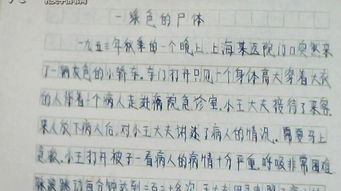 一绿色的尸体
一九五三年秋季的一个晚上,上海某医院门口突然来
了一辆灰色的小轿车,车门打开只见一个身体高大穿着大衣
的人背着一个病人走进病院急诊室,小王大夫接待了来客,
来人放下病人后,对小王大夫讲述了病人的情况。需要马上
急救,小王打开被子一看病人的病情十分严重,呼吸非常困难
脉搏跳动每分钟达到